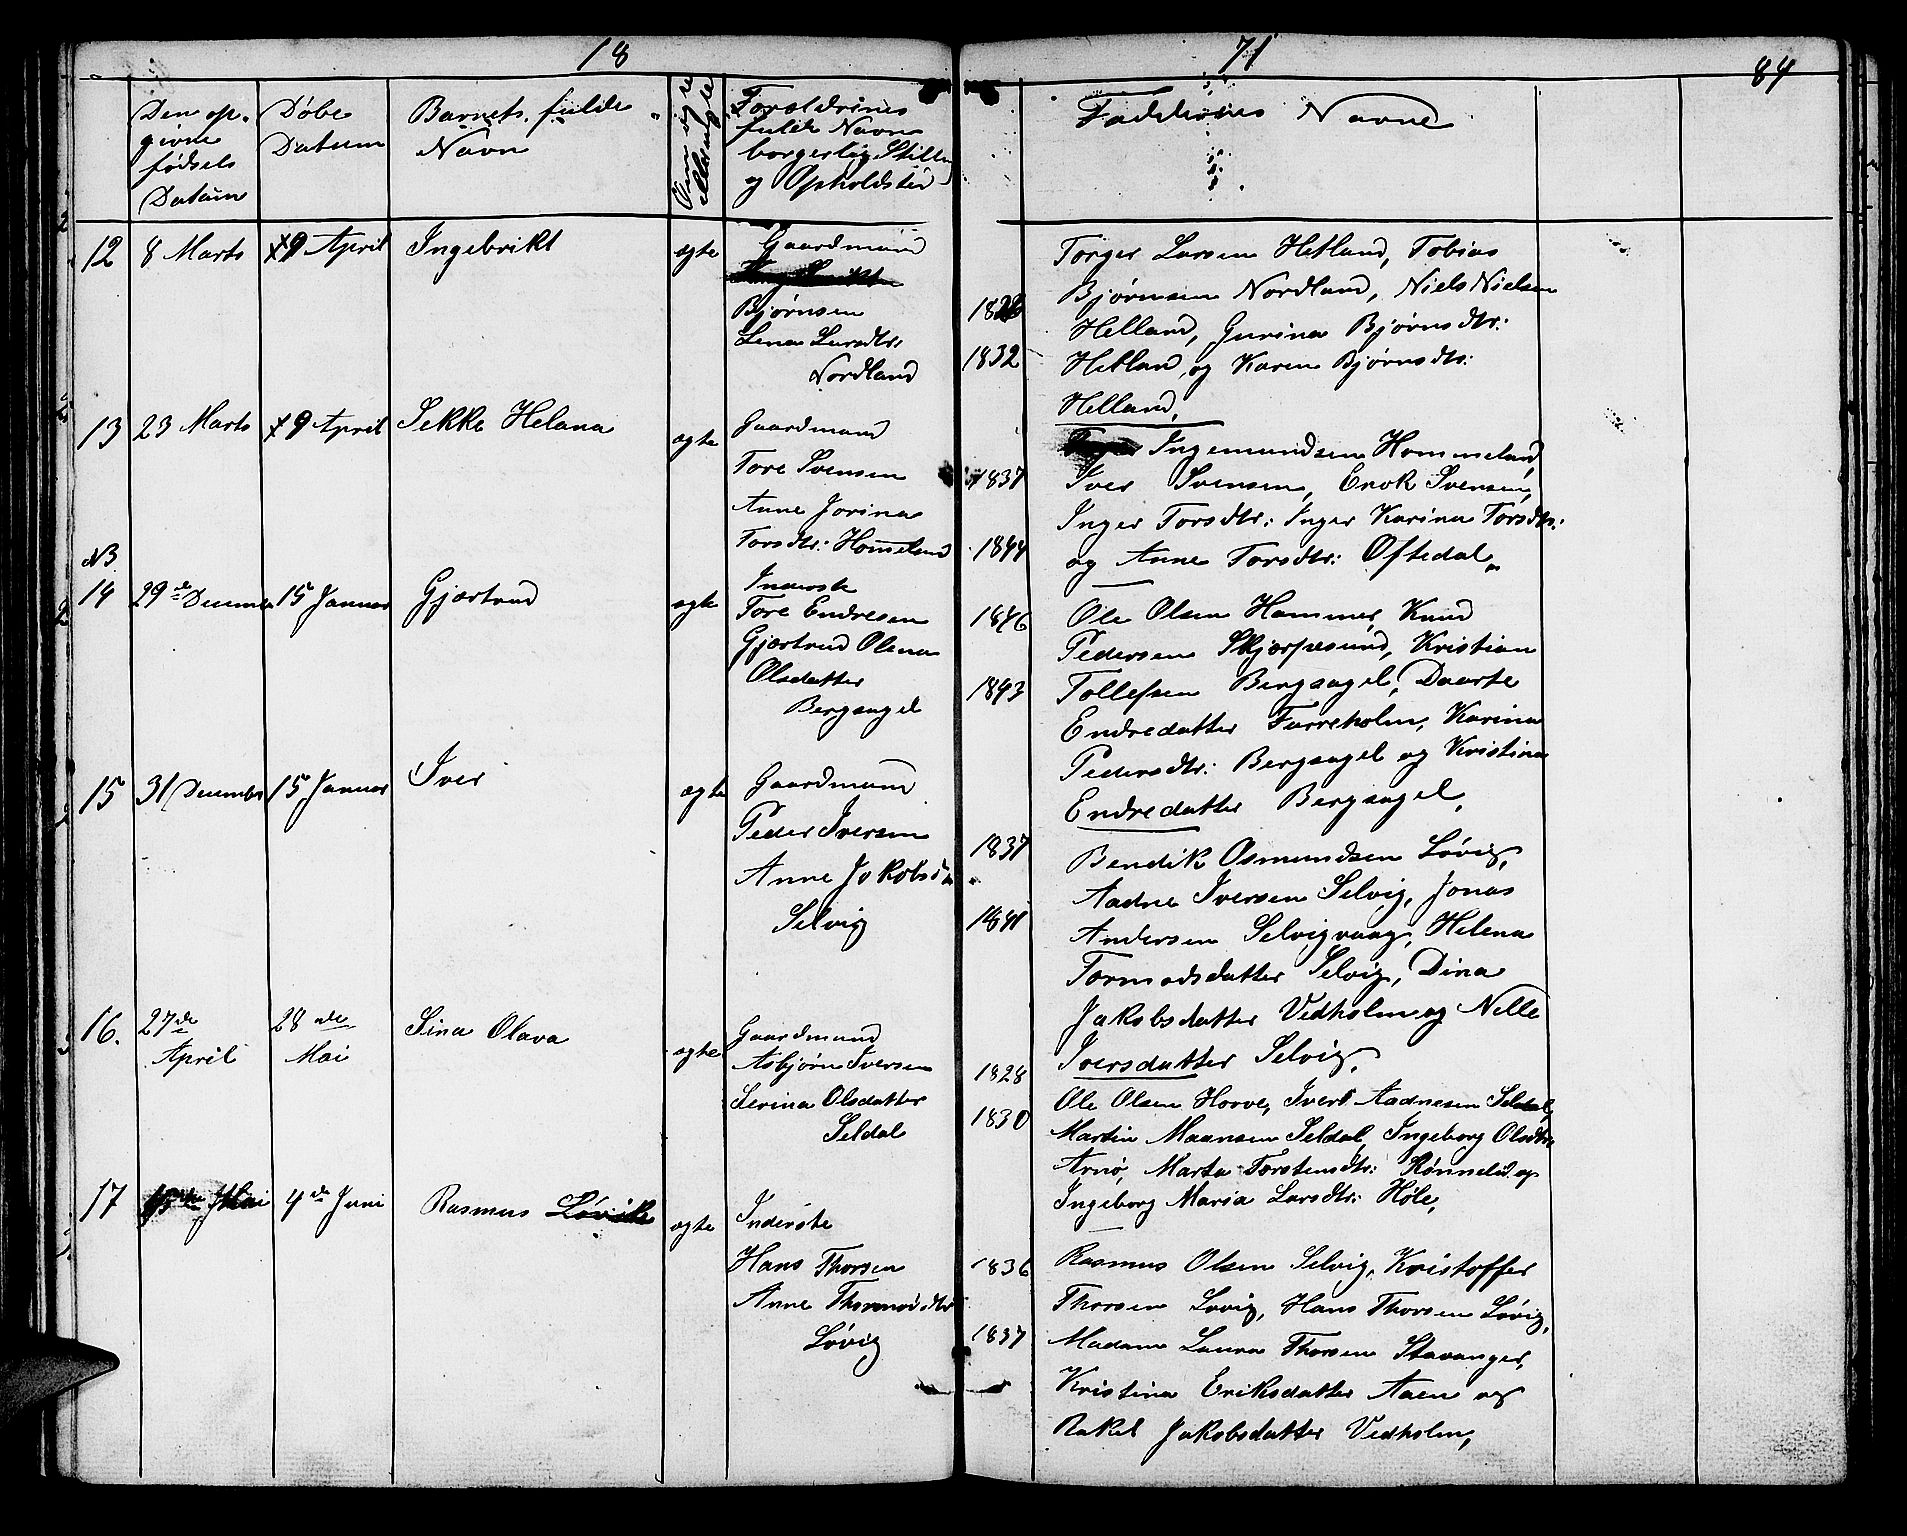 18 71 84
Den op-
givne
fødsels
Datum
Døbe
Datum
Barnets fulde
Navn
Forældrenes
fulde Navn
borgerlig Still.
og Opholdsted
Faddernes Navne
12 8 Marts 9 April Ingebrikt ægte Gaardmand
Bjørnsen
Lena Larsdtr:
Nordland
1832
Torger Larsen Hetland, Tobias
Bjørnsen Nordland, Niels Nielsen
Helland, Gurina Bjørnsdtr:
Hetland, og Karen Bjørnsdtr:
Helland,
13 23 Marts 9 April Sekke Helana ægte Gaardmand
Tore Svensen
Anne Jorina
Torsdtr: Hommeland
1837
1844
Ingemundsen Hommeland,
Iver Svensen, Enok Svensen,
Inger Torsdtr: Inger Karina Torsdtr:
og Anne Torsdtr: Oftedal,
NB
14 29de December 15 Januar Gjærtrud ægte Inderste
Tore Endresen
Gjærtrud Olena
Olsdatter
Bergsagel
1846
1843
Ole Olsen Hammer, Knud
Pedersen Skjørpesund, Kristian
Tollefsen Bergsagel, Daarte
Endredatter Furreholm, Karina
Pedersdtr: Bergsagel og Kristina
Endredatter Bergsagel,
15 31 December 15 Januar Iver ægte Gaardmand
Peder Iversen
Anne Jakobsd
Selvig
1837
1841
Bendik Osmundsen Løvig,
Aadne Iversen Selvig, Jonas
Andersen Selvigvaag, Helena
Tormodsdatter Selvig, Dina
Jakobsdatter Vedholm og Nelle
Iversdatter Selvig,
16. 27de
April
28de
Mai
Sina Olava ægte Gaardmand
Asbjørn Iversen
Serina Olsdatter
Seldal
1828
1830
Ole Olsen Horve, Ivert Aadnesen Seldal,
Martin Maansen Seldal, Ingeborg Olsdtr:
Arnø, Marta Torstensdtr: Rønnelid og
Ingeborg Maria Larsdtr: Høle,
17 Mai 4de Juni Rasmus ægte Inderste
Hans Thorsen
Anne Thormodsdtr
Løvig
1836
1837
Rasmus Olsen Selvig, Kristoffer
Thorsen Løvig, Hans Thorsen Løvig,
Madam Laura Thorsen Stavanger,
Kristina Eriksdatter Aaen og
Rakel Jakobsdatter Vedholm,